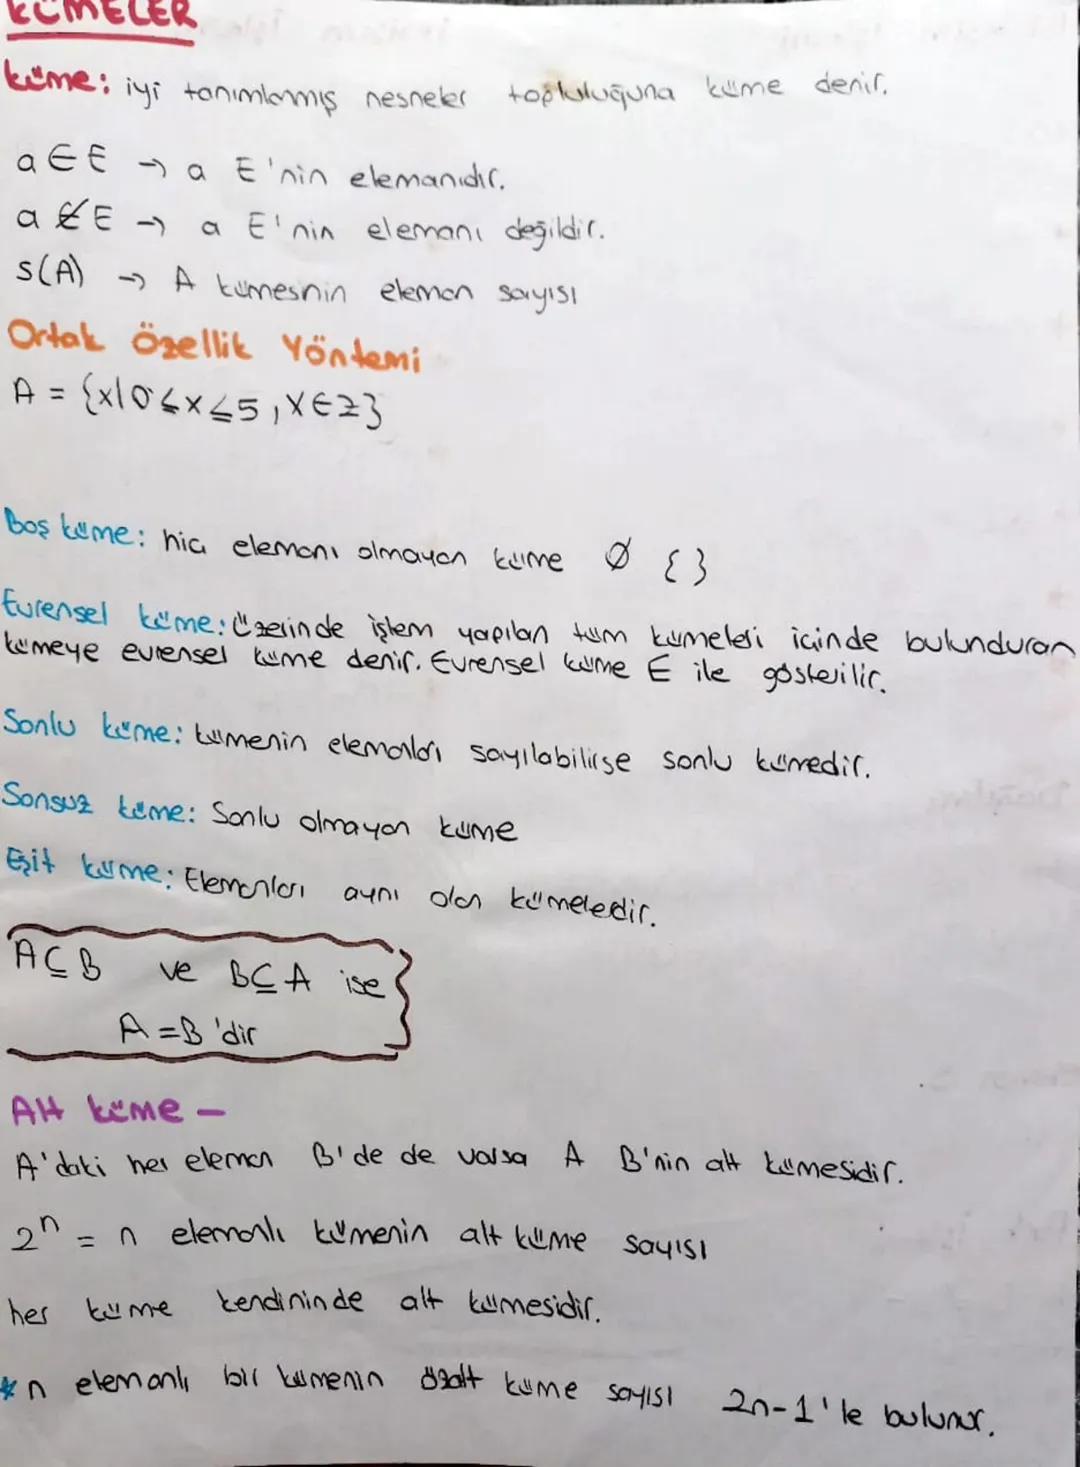 KÜMELER
küme: iyi tanımlanmış nesneler topluluğuna küme denir.
a ∈ E → a E'nin elemanıdır.
a ∉ E → a E'nin elemanı değildir.
s(A) → A kümesnin eleman sayısı
Ortak Özellik Yöntemi
A = {x|0≤x≤5, x∈Z}
Boş küme: hiç elemanı olmayan küme ∅ { }
Evrensel küme: Üzerinde işlem yapılan tüm kümeleri içinde bulunduran
kümeye evrensel küme denir. Evrensel küme E ile gösterilir.
Sonlu küme: kümenin elemanları sayılabilirse sonlu kümedir.
Sonsuz küme: Sonlu olmayan küme
Eşit küme: Elemanları aynı olan kümeledir.
A⊆B ve B⊆A ise
A=B'dir
Alt küme –
A'daki her eleman B'de de varsa A B'nin alt kümesidir.
2ⁿ = n elemanlı kümenin alt küme sayısı
her küme kendininde alt kümesidir.
* n elemanlı bir kümenin özalt küme sayısı 2n-1'le bulunur.